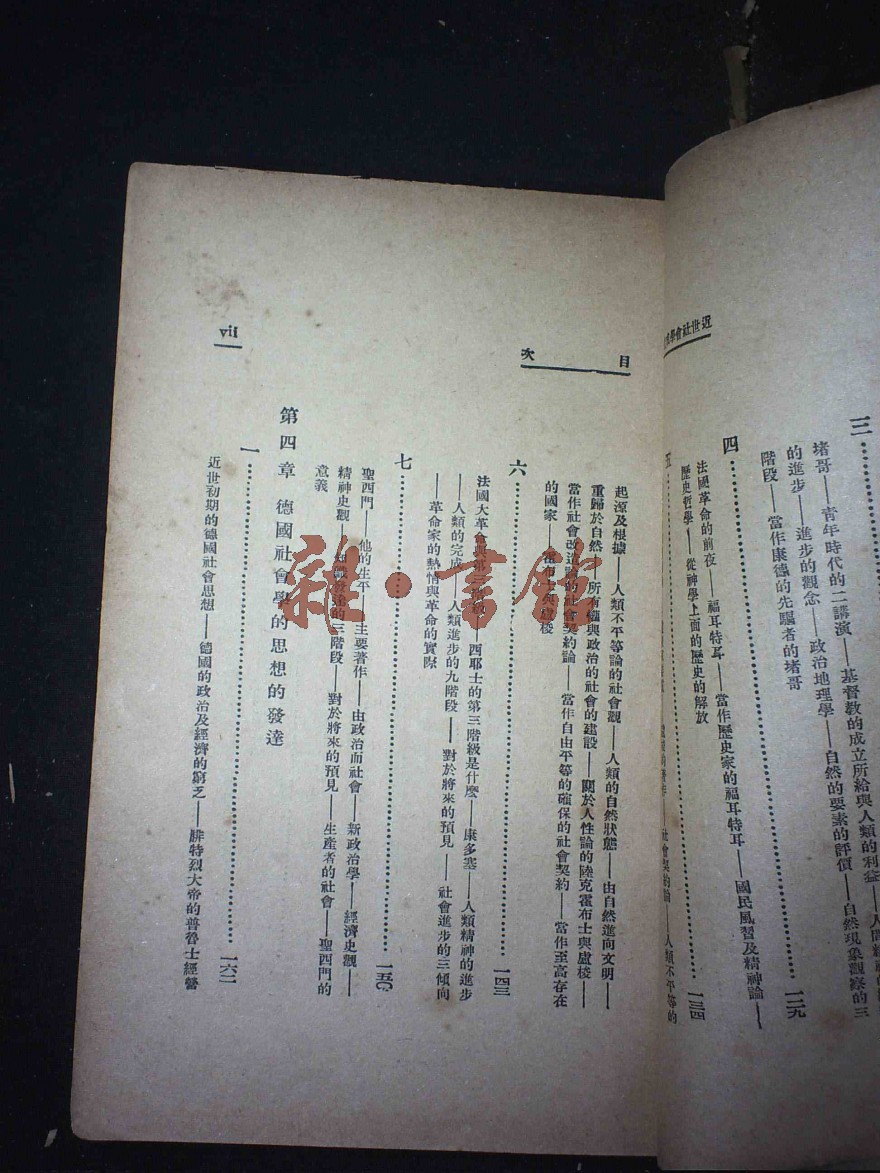 近世社會學
三
堵哥——青年時代的二講演——基督教的成立所給與人類的利益——人間精神的
的進步——進步的觀念——政治地理學——自然的要素的評價——自然現象觀察的三
階段——當作康德的先驅者的堵哥
一二九
四
法國革命的前夜——福耳特耳——當作歷史家的福耳特耳——國民風習及精神論——
歷史哲學——從神學上面的歷史的解放
一三四
五
社會契約論——人類不平等的
目次
起源及根據——人類不平等論的社會觀——人類的自然狀態——由自然進向文明——
重歸於自然——所有權與政治的社會的建設——關於人性論的陸克霍布士與盧梭——
當作社會改造論的社會契約論——當作自由平等的確保的社會契約——當作至高存在
的國家——盧梭
六
一四三
法國大革命與第三階級——西耶士的第三階級是什麼——康多塞——人類精神的進步
——人類的完成——人類進步的九階段——對於將來的預見——社會進步的三傾向
——革命家的熱情與革命的實際
七
一五〇
聖西門——他的生平——主要著作——由政治而社會——新政治學——經濟史觀——
精神史觀——知識發達的三階段——對於將來的預見——生產者的社會——聖西門的
意義
第四章 德國社會學的思想的發達
一
一六二
近世初期的德國社會思想——德國的政治及經濟的窮乏——腓特烈大帝的普魯士經營
vii
雜·書館